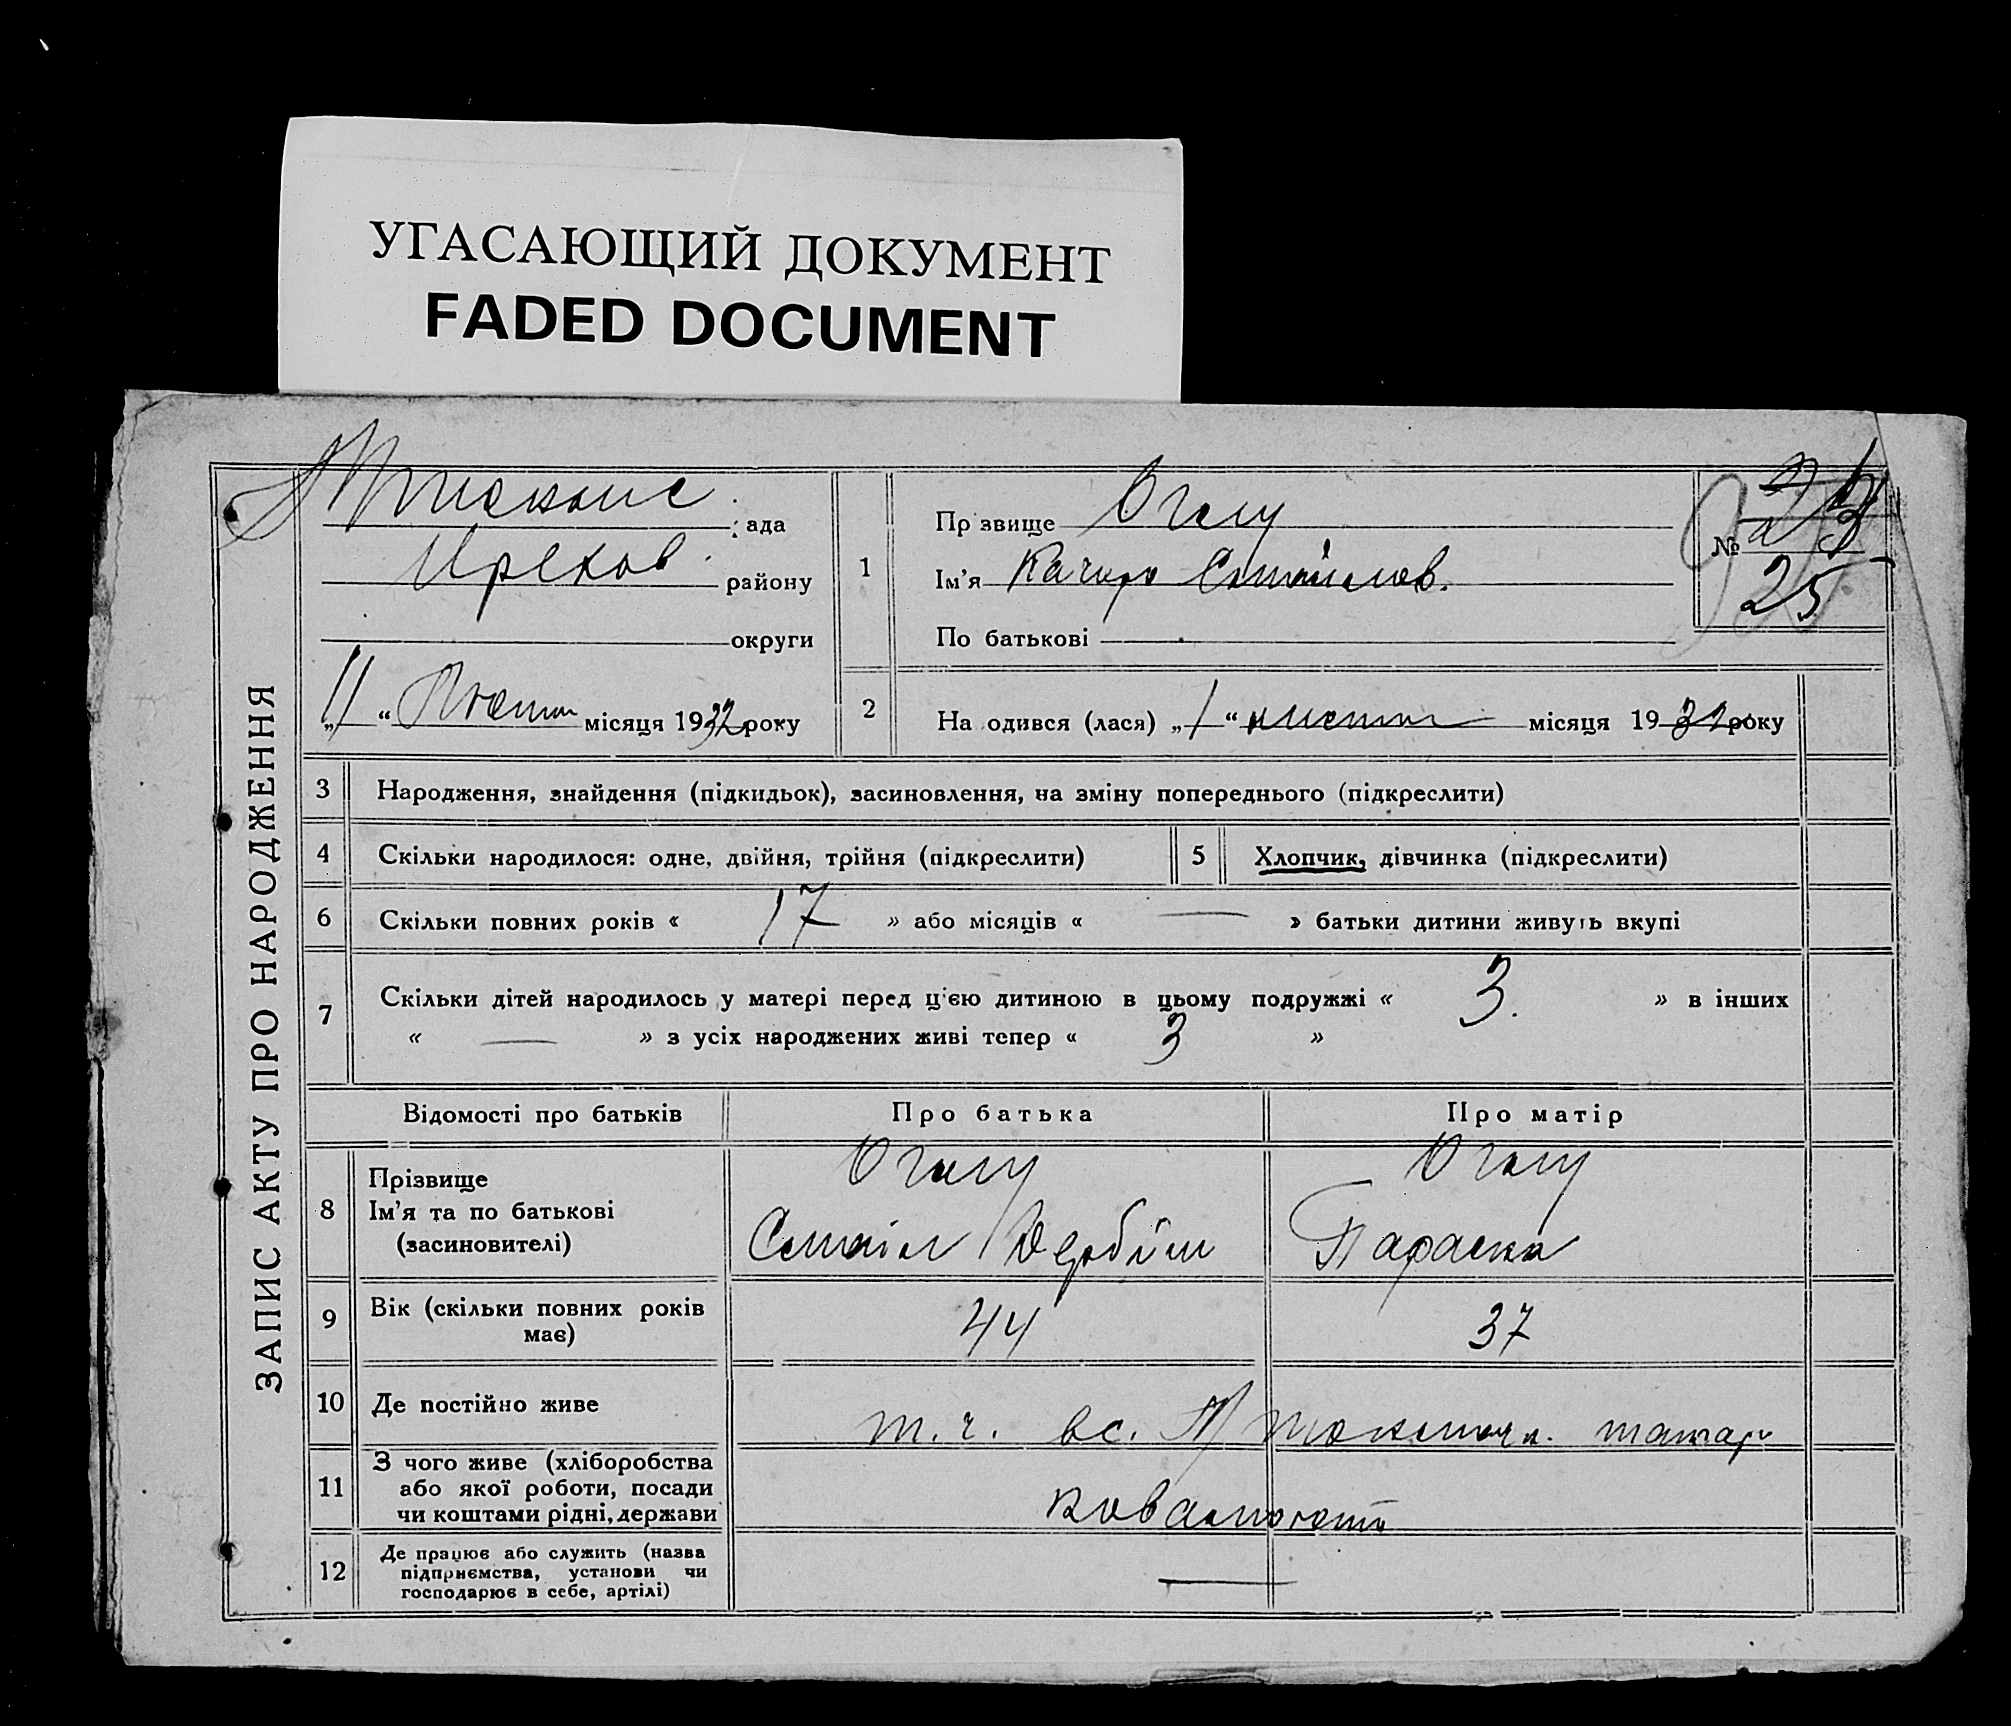 УГАСАЮЩИЙ ДОКУМЕНТ
FADED DOCUMENT
ЗАПИС АКТУ ПРО НАРОДЖЕННЯ
ада
району
округи
„11“ місяця 1932 року
1
Прізвище Оглу
Ім'я
По батькові
№ 25
2
На одився (лася) „1“ місяця 19 року
3 Народження, знайдення (підкидьок), засиновлення, на зміну попереднього (підкреслити)
4 Скільки народилося: одне, двійня, трійня (підкреслити)
5 Хлопчик, дівчинка (підкреслити)
6 Скільки повних років « 17 » або місяців « — » батьки дитини живуть вкупі
7 Скільки дітей народилось у матері перед ц'єю дитиною в цьому подружжі « 3. » в інших
« — » з усіх народжених живі тепер « 3 »
Відомості про батьків Про батька Про матір
8 Прізвище Оглу Оглу
Ім'я та по батькові Параска
(засиновителі)
9 Вік (скільки повних років 44 37
має)
10 Де постійно живе т. ч. вс.
11 З чого живе (хліборобства
або якої роботи, посади
чи коштами рідні, держави
12 Де працює або служить (назва
підприємства, установи чи
господарює в себе, артілі) —